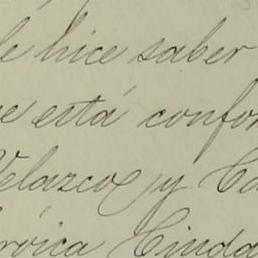 le hice saber
ue está confor
Velazco y Ca
eróica Ciuda